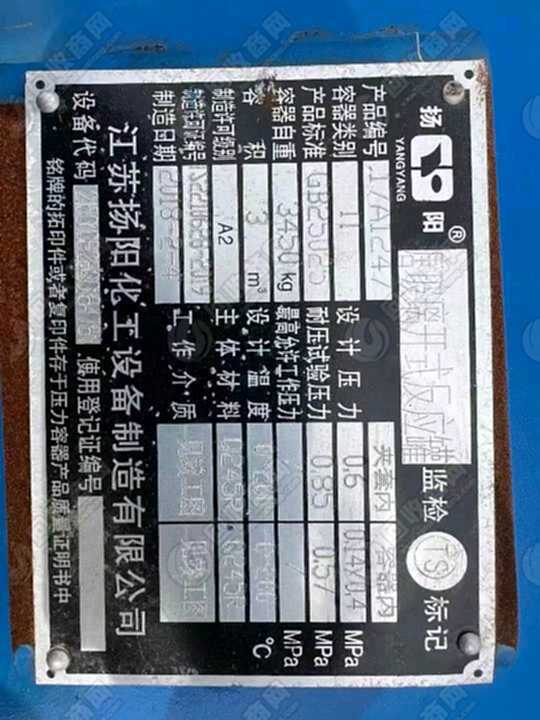 扬阳®
YANGYANG
搪玻璃开式反应罐 监检 TS 标记
产品编号 17A1247
容器类别 II
产品标准 GB25025
容器自重 3450 kg
容积 3 m³
制造许可级别 A2
制造许可证编号
制造日期 2018-2-4
夹套内 容器内
设计压力 0.6 MPa
耐压试验压力 0.85 0.57 MPa
最高允许工作压力 / / MPa
设计温度 ℃
主体材料 Q245R Q245R
工作介质 见竣工图 见竣工图
江苏扬阳化工设备制造有限公司
设备代码 使用登记证编号
铭牌的拓印件或者复印件存于压力容器产品质量证明书中